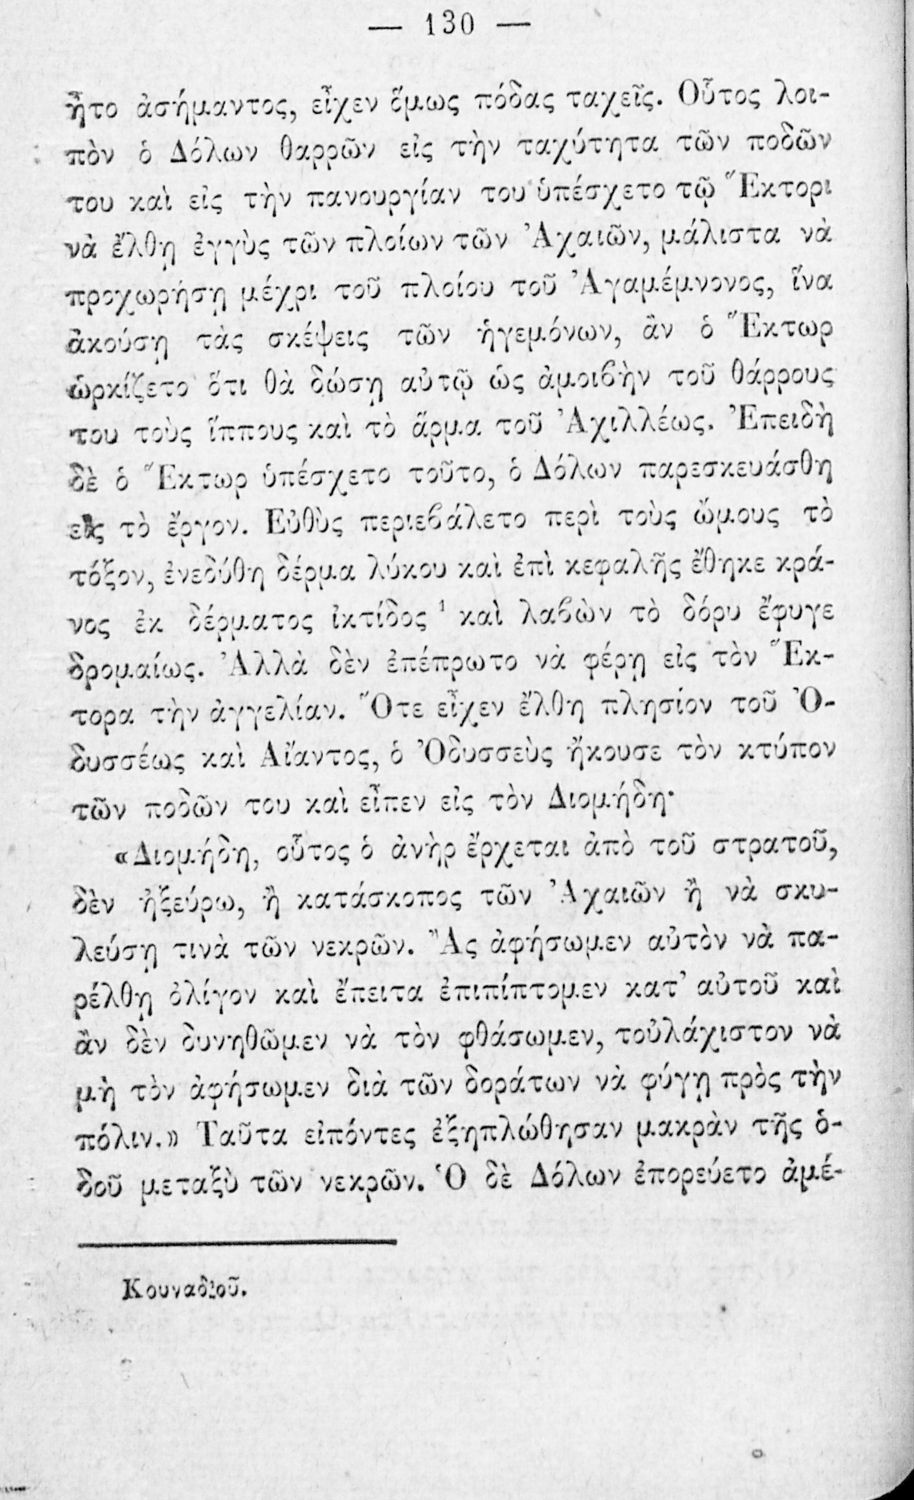 — 130 —
ἦτο ἀσήμαντος, εἶχεν ὅμως πόδας ταχεῖς. Οὗτος λοι-
πὸν ὁ Δόλων θαρρῶν εἰς τὴν ταχύτητα τῶν ποδῶν
του καὶ εἰς τὴν πανουργίαν του ὑπέσχετο τῷ Ἕκτορι
νὰ ἔλθῃ ἐγγὺς τῶν πλοίων τῶν Ἀχαιῶν, μάλιστα νὰ
προχωρήσῃ μέχρι τοῦ πλοίου τοῦ Ἀγαμέμνονος, ἵνα
ἀκούσῃ τὰς σκέψεις τῶν ἡγεμόνων, ἂν ὁ Ἕκτωρ
ὡρκίζετο ὅτι θὰ δώσῃ αὐτῷ ὡς ἀμοιβὴν τοῦ θάρρους
του τοὺς ἵππους καὶ τὸ ἅρμα τοῦ Ἀχιλλέως. Ἐπειδὴ
δὲ ὁ Ἕκτωρ ὑπέσχετο τοῦτο, ὁ Δόλων παρεσκευάσθη
εἰς τὸ ἔργον. Εὐθὺς περιεβάλετο περὶ τοὺς ὤμους τὸ
τόξον, ἐνεδύθη δέρμα λύκου καὶ ἐπὶ κεφαλῆς ἔθηκε κρά-
νος ἐκ δέρματος ἰκτίδος ¹ καὶ λαβὼν τὸ δόρυ ἔφυγε
δρομαίως. Ἀλλὰ δὲν ἐπέπρωτο νὰ φέρῃ εἰς τὸν Ἕκ-
τορα τὴν ἀγγελίαν. Ὅτε εἶχεν ἔλθῃ πλησίον τοῦ Ὀ-
δυσσέως καὶ Αἴαντος, ὁ Ὀδυσσεὺς ἤκουσε τὸν κτύπον
τῶν ποδῶν του καὶ εἶπεν εἰς τὸν Διομήδη·
«Διομήδη, οὗτος ὁ ἀνὴρ ἔρχεται ἀπὸ τοῦ στρατοῦ,
δὲν ἠξεύρω, ἢ κατάσκοπος τῶν Ἀχαιῶν ἢ νὰ σκυ-
λεύσῃ τινὰ τῶν νεκρῶν. Ἂς ἀφήσωμεν αὐτὸν νὰ πα-
ρέλθῃ ὀλίγον καὶ ἔπειτα ἐπιπίπτομεν κατ’ αὐτοῦ καὶ
ἂν δὲν δυνηθῶμεν νὰ τὸν φθάσωμεν, τοὐλάχιστον νὰ
μὴ τὸν ἀφήσωμεν διὰ τῶν δοράτων νὰ φύγῃ πρὸς τὴν
πόλιν.» Ταῦτα εἰπόντες ἐξηπλώθησαν μακρὰν τῆς ὁ-
δοῦ μεταξὺ τῶν νεκρῶν. Ὁ δὲ Δόλων ἐπορεύετο ἀμέ-
Κουναδιοῦ.